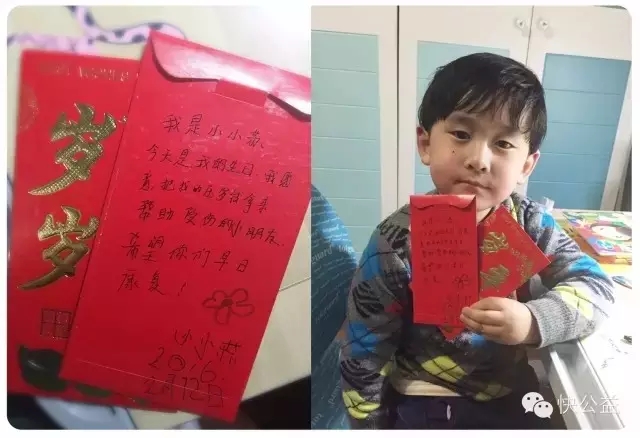 岁岁
我是小小
今天是我的生日，我愿
意把我的压岁钱拿来
帮助受伤的小朋友..
希望你们早日
康复！
小小
2016.
2月12日
快公益